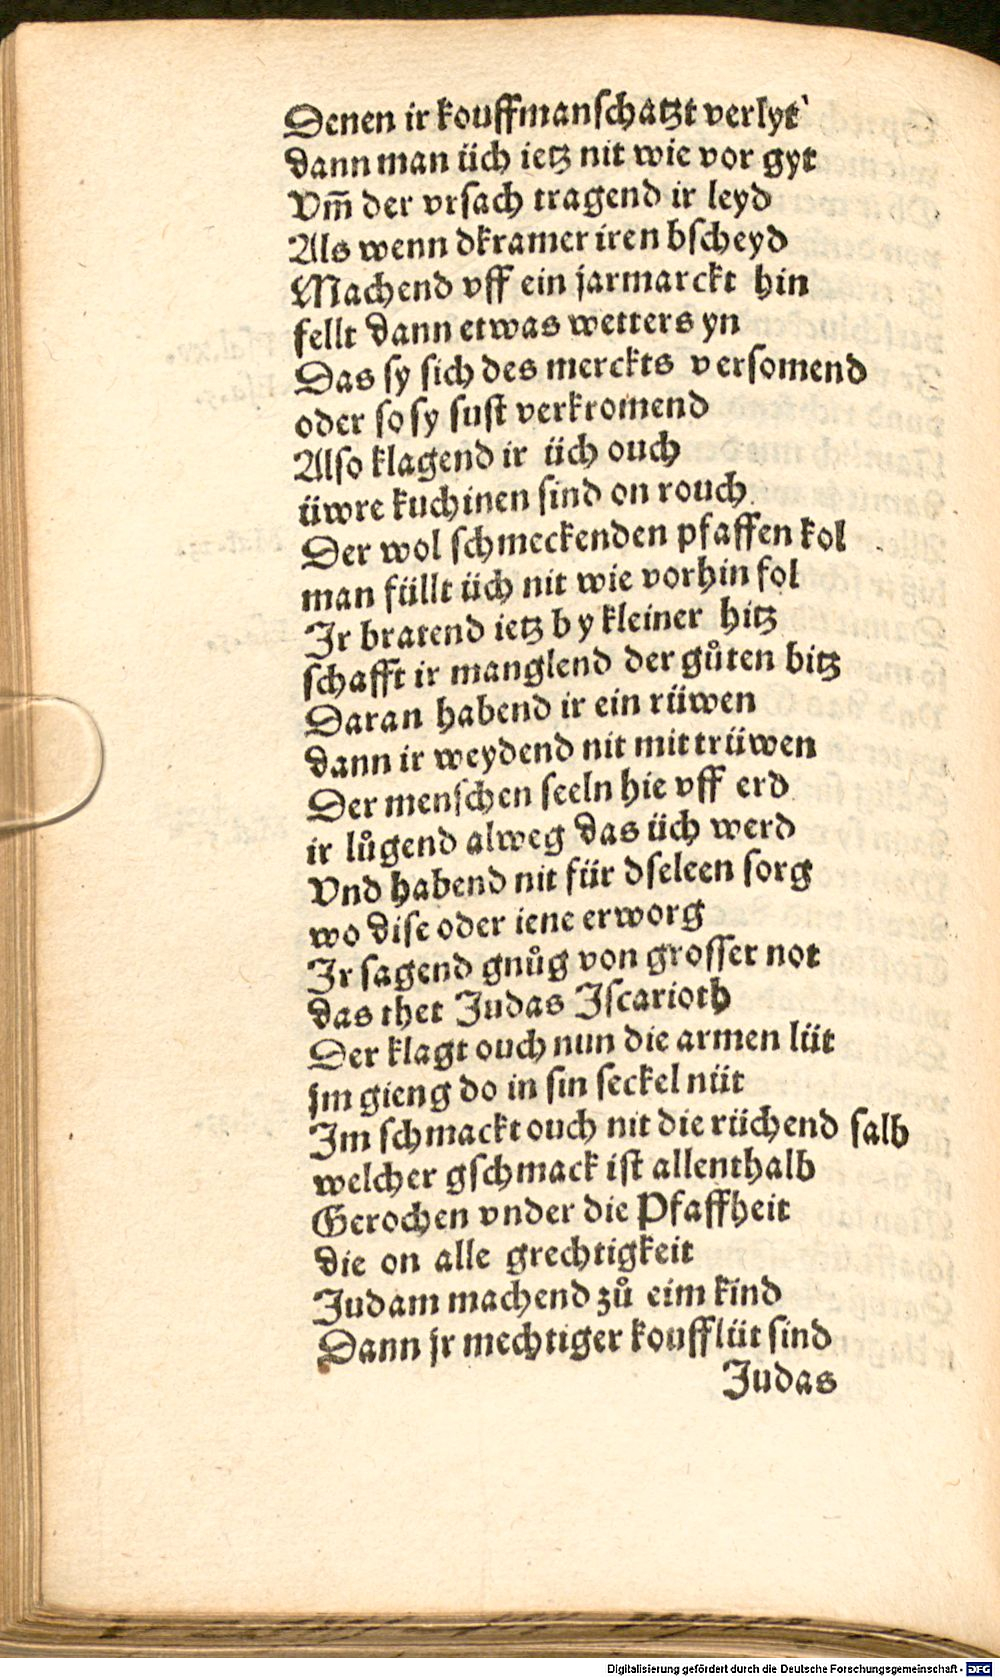 Denen ir kouffmanschatzt verlyt
dann man üch ietz nit wie vor gyt
Vm̄ der vrsach tragend ir leyd
Als wenn dkramer iren bscheyd
Machend vff ein jarmarckt hin
fellt dann etwas wetters yn
Das sy sich des merckts versomend
oder so sy sust verkromend
Also klagend ir üch ouch
üwre kuchinen sind on rouch
Der wol schmeckenden pfaffen kol
man füllt üch nit wie vorhin fol
Ir bratend ietz by kleiner hitz
schafft ir manglend der gůten bitz
Daran habend ir ein rüwen
dann ir weydend nit mit trüwen
Der menschen seeln hie vff erd
ir lůgend alweg das üch werd
Vnd habend nit für dseleen sorg
wo dise oder iene erworg
Ir sagend gnůg von grosser not
das thet Judas Iscarioth
Der klagt ouch nun die armen lüt
jm gieng do in sin seckel nüt
Im schmackt ouch nit die rüchend salb
welcher gschmack ist allenthalb
Gerochen vnder die Pfaffheit
die on alle grechtigkeit
Judam machend zů eim kind
Dann jr mechtiger koufflüt sind
Judas
Digitalisierung gefördert durch die Deutsche Forschungsgemeinschaft - DFG